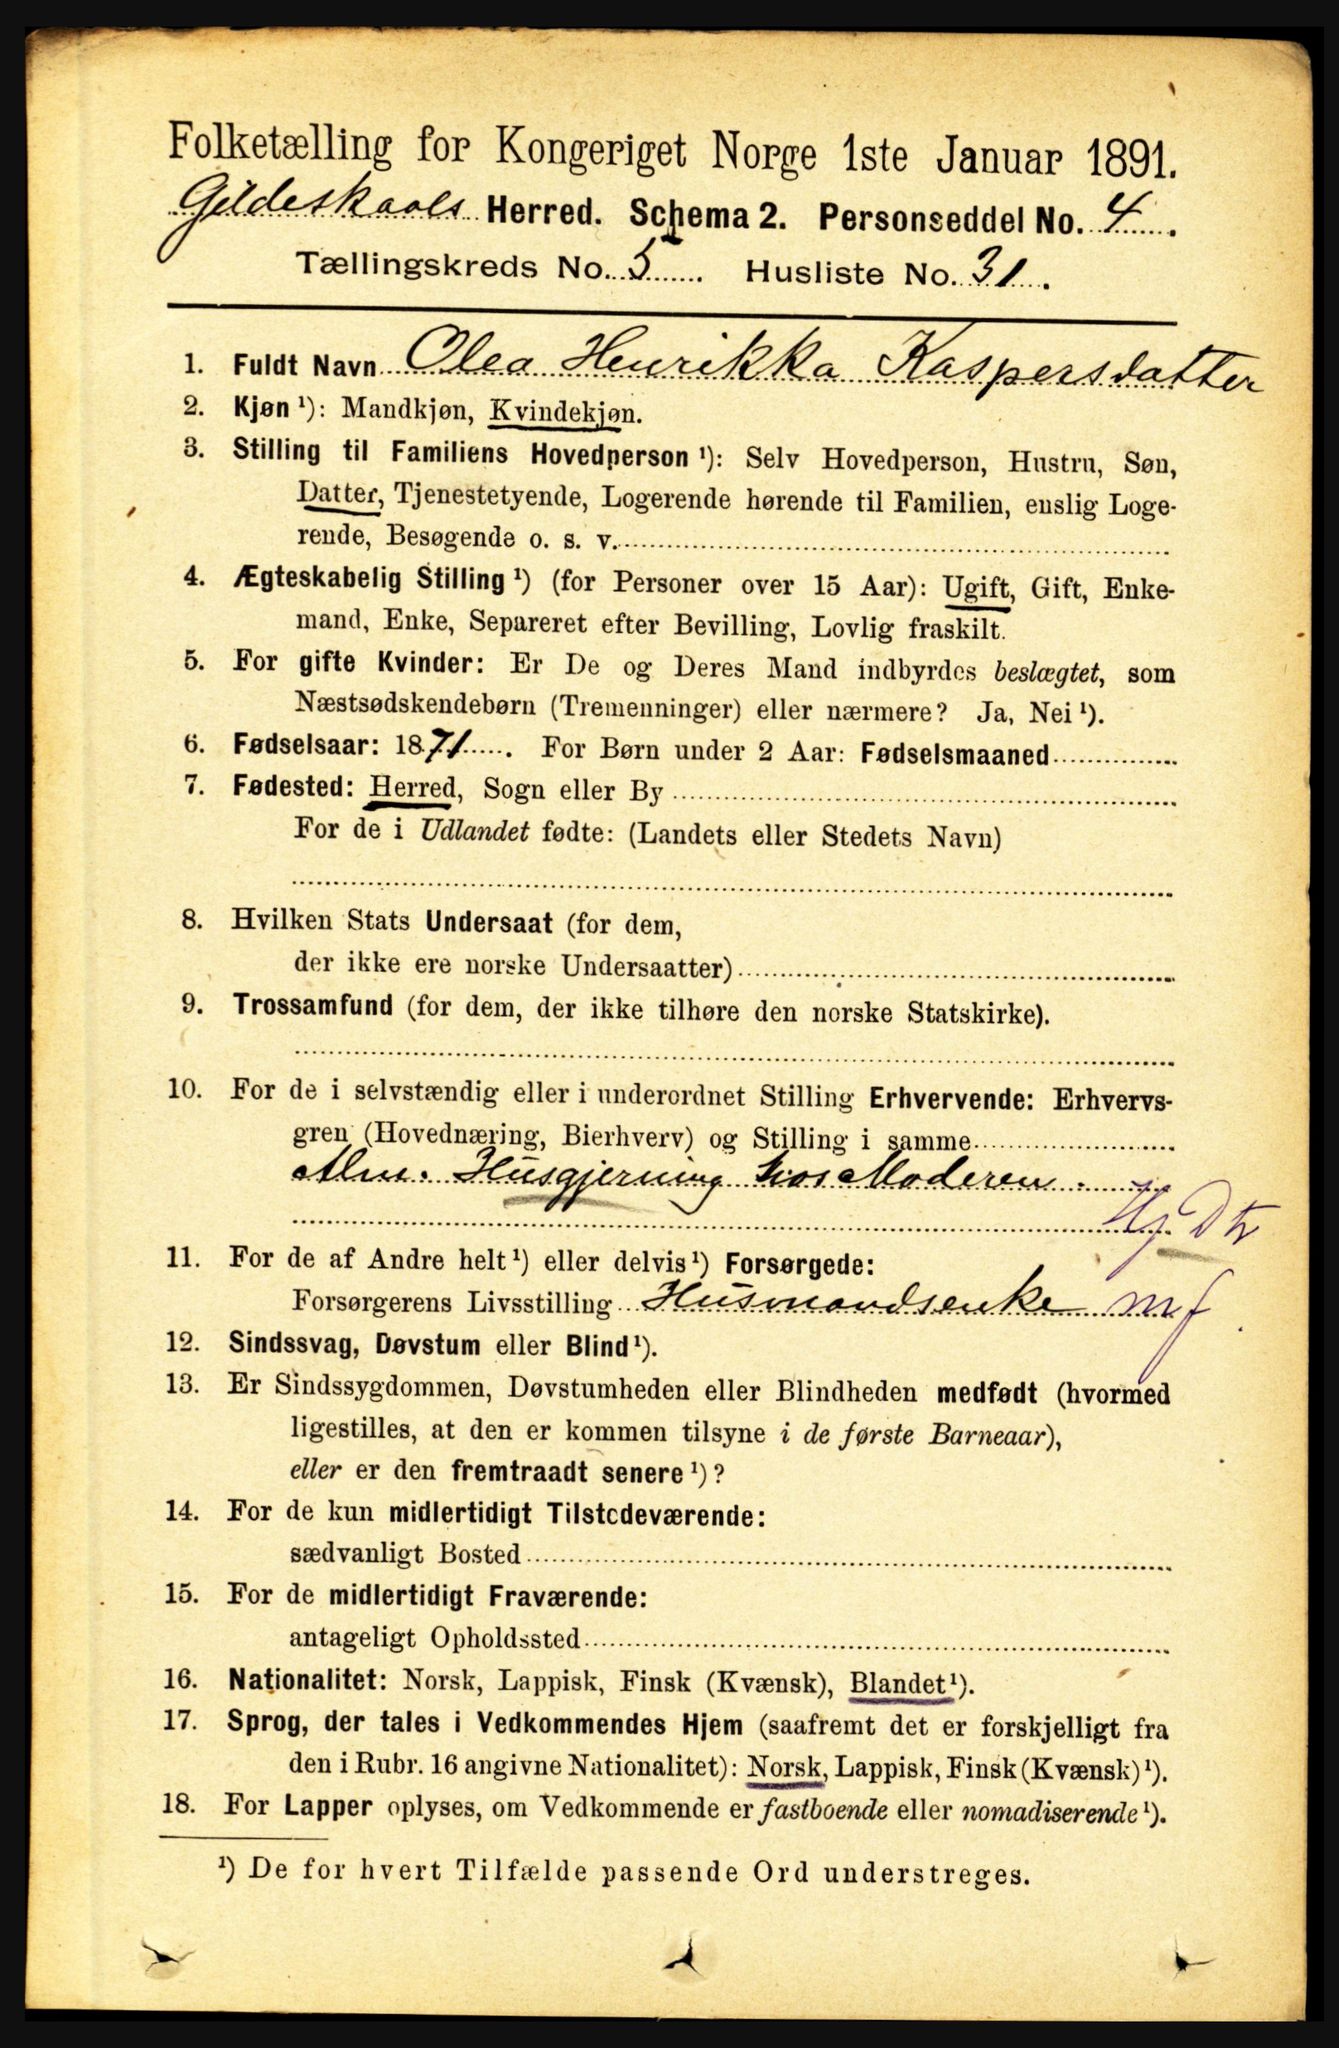 Folketælling for Kongeriget Norge 1ste Januar 1891.
Gildeskaals Herred. Schema 2. Personseddel No. 4.
Tællingskreds No. 5. Husliste No. 31.
1. Fuldt Navn Olea Henrikka Kaspersdatter
2. Kjøn ¹): Mandkjøn, Kvindekjøn.
3. Stilling til Familiens Hovedperson ¹): Selv Hovedperson, Hustru, Søn,
Datter, Tjenestetyende, Logerende hørende til Familien, enslig Loge-
rende, Besøgende o. s. v.
4. Ægteskabelig Stilling ¹) (for Personer over 15 Aar): Ugift, Gift, Enke-
mand, Enke, Separeret efter Bevilling, Lovlig fraskilt.
5. For gifte Kvinder: Er De og Deres Mand indbyrdes beslægtet, som
Næstsødskendebørn (Tremenninger) eller nærmere? Ja, Nei ¹).
6. Fødselsaar: 1871. For Børn under 2 Aar: Fødselsmaaned
7. Fødested: Herred, Sogn eller By
For de i Udlandet fødte: (Landets eller Stedets Navn)
8. Hvilken Stats Undersaat (for dem,
der ikke ere norske Undersaatter)
9. Trossamfund (for dem, der ikke tilhøre den norske Statskirke).
10. For de i selvstændig eller i underordnet Stilling Erhvervende: Erhvervs-
gren (Hovednæring, Bierhverv) og Stilling i samme
Alm. Husgjerning hos Moderen.
Hj Dtr
11. For de af Andre helt ¹) eller delvis ¹) Forsørgede:
Forsørgerens Livsstilling Husmandsenke mf
12. Sindssvag, Døvstum eller Blind ¹).
13. Er Sindssygdommen, Døvstumheden eller Blindheden medfødt (hvormed
ligestilles, at den er kommen tilsyne i de første Barneaar),
eller er den fremtraadt senere ¹)?
14. For de kun midlertidigt Tilstedeværende:
sædvanligt Bosted
15. For de midlertidigt Fraværende:
antageligt Opholdssted
16. Nationalitet: Norsk, Lappisk, Finsk (Kvænsk), Blandet ¹).
17. Sprog, der tales i Vedkommendes Hjem (saafremt det er forskjelligt fra
den i Rubr. 16 angivne Nationalitet): Norsk, Lappisk, Finsk (Kvænsk) ¹).
18. For Lapper oplyses, om Vedkommende er fastboende eller nomadiserende ¹).
¹) De for hvert Tilfælde passende Ord understreges.